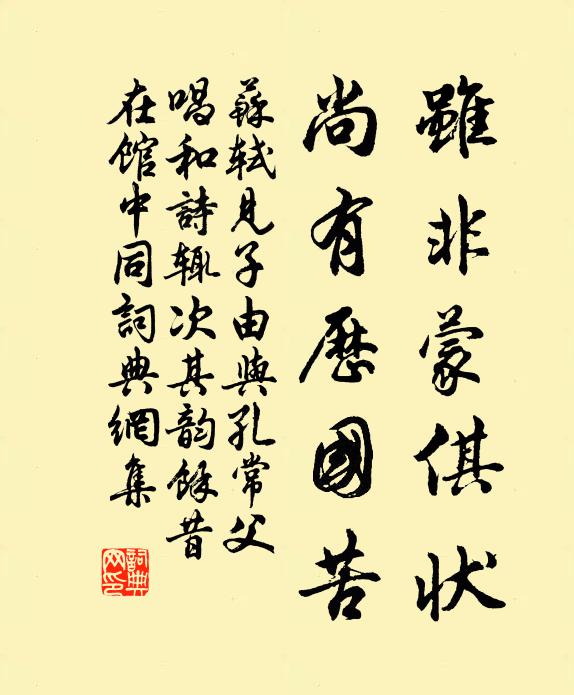 雖非蒙倛状
尚有歷國苦
蘇軾見子由與孔常父
唱和詩輒次其韵餘昔
在館中同詞典網集
詞典网印